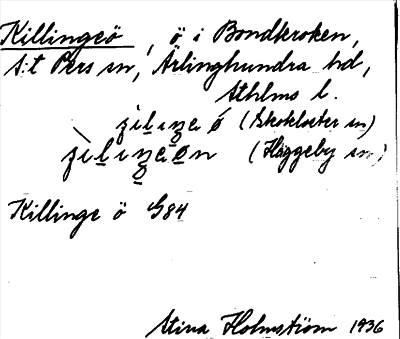 Killingeö, ö i Bondkroken,
S:t Pers sn, Ärlinghundra hd,
Sthlms l.
(Skokloster sn)
(Häggeby sn)
Killinge ö G84
Stina Holmström 1936